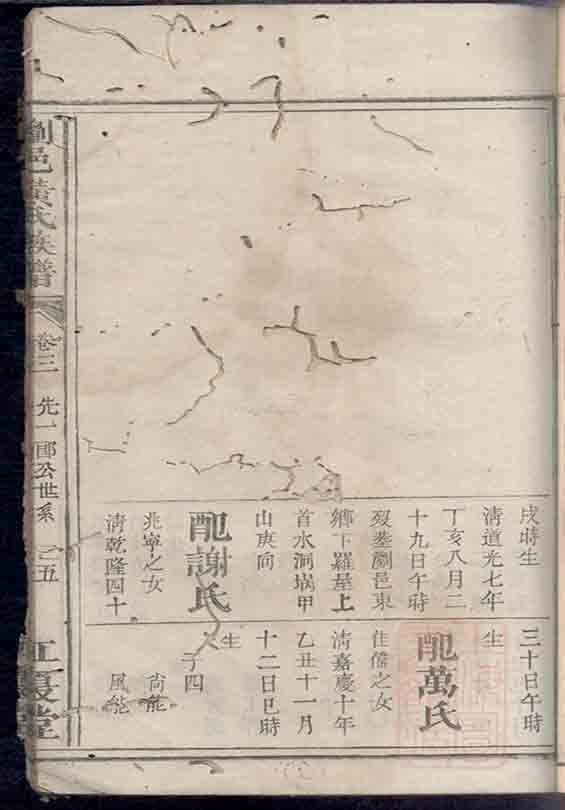 戌時生
清道光七年
丁亥八月二
十九日午時
歿塟瀏邑東
鄉下羅星上
首水洞塅甲
山庚向
配謝氏
兆寧之女
清乾隆四十
三十日午時
生
配萬氏
佳儒之女
清嘉慶十年
乙丑十一月
十二日巳時
生
子四
尚能
風能
瀏邑黃氏族譜
卷三
先一郎公世系
五
江夏堂